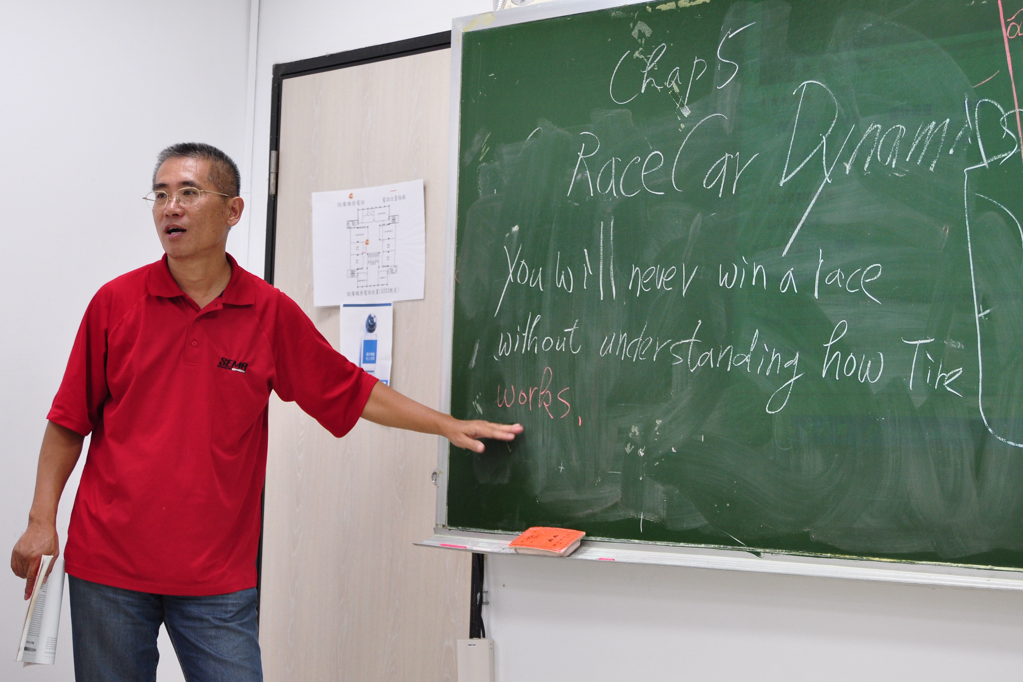 Chap 5
Race Car Dynami
You will never win a race
without understanding how Tire
works.